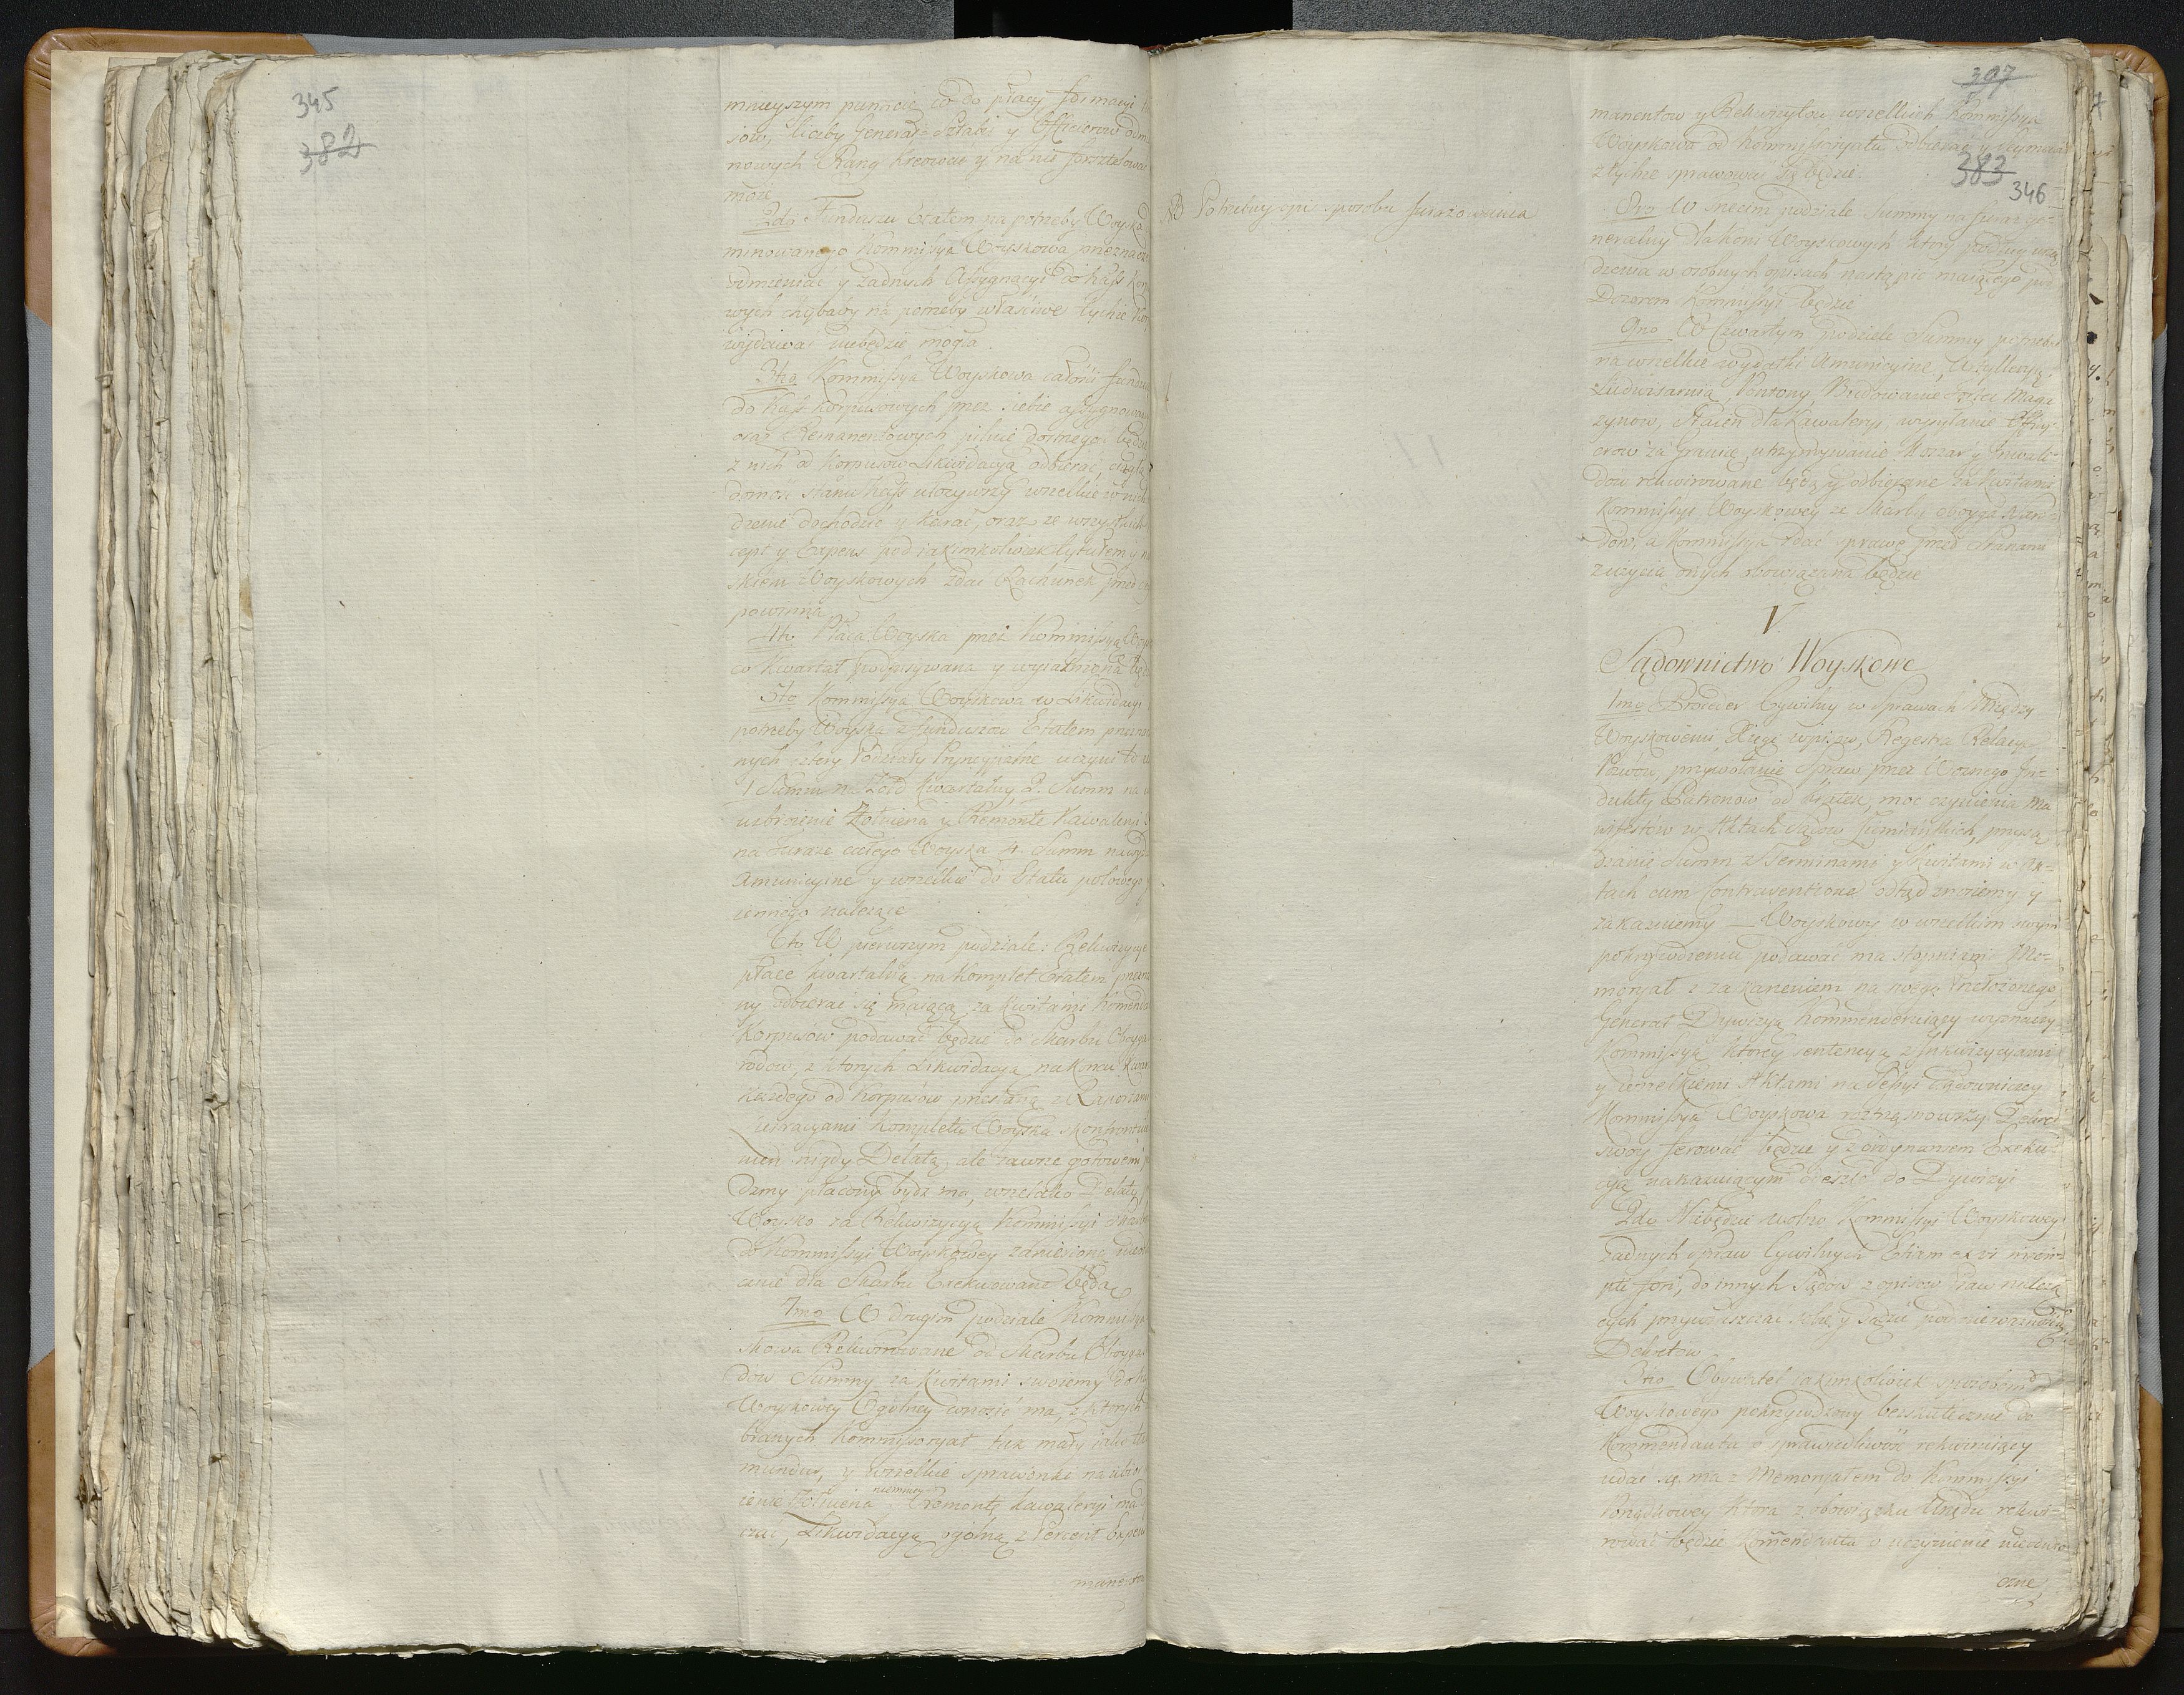 345
382
mnieyszym punkcie co do płacy formacyi
sow, liczby Generał-Sztabu y Officierow odm
nowych Rang kreować y na nie forsztelować
może
2do Funduszu Etatem na potrzeby Woyska
minowanego Kommissya Woyskowa przeznacze
odmieniać y żadnych Assygnacyi do Kass Kor
wych chybaby na potrzeby właściwe tychże Kor
wydawać niebędzie mogła.
3tio Kommissya Woyskowa całości fundu
do Kass korpusowych przez siebie assygnowan
oraz Remanentowych pilnie dostrzegać będzie
z nich od Korpusow Likwidacyą odbierać, ciągłą
domość stanu Kass utrzymywać wszelkie w nich
dzenie dochodzić y karać, oraz ze wszystkich
cept y Expens pod iakimkolwiek tytułem y na
skiem Woyskowych zdać Rachunek przed
powinna
4to Płaca Woyska przez Kommissyą Woy
co kwartał podpisywana y
5to Kommissya Woyskowa w Likwidacyi
potrzeby Woyska z funduszow Etatem przezna
nych cztery Podziały Pryncypialne uczyni to i
1 Summ na Żołd kwartalny 2. Summ na u
ubiorzenie Żołnierza y Remonte Kawaleryi
na Furaże całego Woyska 4. Summ na wyd
Amunicyine y wszelkie do Etatu polowego
iennego należące
6to W pierwszym podziale: Rekwizycye
płace kwartalną na komplet Etatem przezna
ny odbierać się maiącą, za kwitami Kommenda
Korpusow podawać będzie do Skarbu Oboyga
rodow, z ktorych Likwidacyą na końcu kwar
każdego od Korpusów przesłaną z Raportami
Lustracyami kompletu Woyska skonfrontuie
nien nigdy Delatą, ale zawsze gotowemi p
dzmy płacony bydź ma, wszelako Delaty
Woysko za Rekwizycyą Kommissyi Skarbo
do Kommissyi Woyskowey zaniesioną nieod
cznie dla Skarbu Exekwowane będą
7mo W drugim podziale Kommissya
skowa Rekwirowane od Skarbu Oboyga
dow Summy za kwitami swoiemy do ka
Woyskowey Ogolney wnosić ma, z ktorych
branych Kommissoryat tak mały iako
mundur, y wszelkie sprawunki na ubio
rzenie Żołnierza niemniey Remontę kawaleryi ma
czać, Likwidacyą ogolną z Percept Expens
manentow
NB Potrzebny opis sposobu furażowania
397
383
346
manentow y Rekwizytow wszelkich Kommissya
Woyskowa od Kommissoryatu odbierać y
z tychże sprawować się będzie.
8vo W trzecim podziale Summy na furaż ge-
neralny dla koni Woyskowych ktory podług urzą
dzenia w osobnych opisach nastąpić maiącego pod
Dozorem Kommissyi będzie
9no W Czwartym podziale Summy potrzebne
na wszelkie wydatki Amunicyine, Artylleryą,
Ludwisarnią, Pontony, Budowanie Fortec Maga
zynow, Staien dla Kawaleryi, wysyłanie Offi-
cerow za Granice, utrzymywanie Koszar y Inwali-
dow rekwirowane będą y odbierane za kwitami
Kommissyi Woyskowey ze Skarbu oboyga Naro-
dow, a Kommissya zdać sprawę przed Stanami
z użycia onych obowiązana będzie
V
Sądownictwo Woyskowe
1mo Proceder Cywilny w Sprawach Między
Woyskowemi, Xięgi wpisow, Regestra Relacye
Pozwow, przywołanie Spraw przez Woznego In-
dukty Patronow od kratek, moc czynienia Ma
nifestow w Aktach Sądow Ziemiańskich, przysą
dzanie Summ z Terminami y kwitami w Ak-
tach cum Contraventione odtąd znosiemy y
zakazuiemy — Woyskowy w wszelkim swym
pokrzywdzeniu podawać ma stopniami Me-
moryał z zaskarżeniem na swego Przełożonego
Generał Dywizyą Kommenderuiący wyznaczy
Kommissyą ktorey sentencyą z Inkwizycyami
y wszelkiemi Aktami na Sessyi Sądowniczey
Kommissya Woyskowa roztrząsnowszy Dekret
swoy ferować będzie y z ordynansem Exeku-
cyą nakazuiącym odeszle do Dywizyi
2do Niebędzie wolno Kommissyi Woyskowey
żadnych Spraw Cywilnych Etiam ex vi
pti fori, do innych Sądow z opisow Praw należą
cych przywłaszczać sobie y sądzić pod nieważnością
Dekretow
3tio Obywatel iakimkolwiek sposobem od
Woyskowego pokrzywdzony bezskutecznie do
Kommendanta o sprawiedliwość rekwiruiący
udać się ma z Memoryałem do Kommissyi
Porządkowey ktora z obowiązku Urzędu rekwi-
rować będzie Kommendanta o uczynienie nieodwło
czne